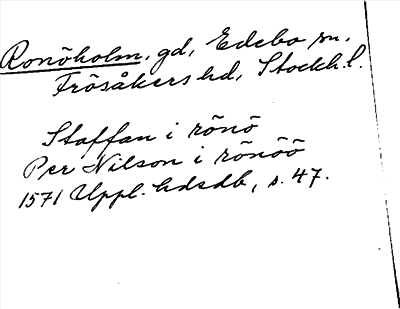 Ronöholm, gd, Edebo sn,
Frösåkers hd, Stockh. l.
Staffan i rönö
Per Nilson i rönöö
1571 Uppl. hdsdb, s. 47.